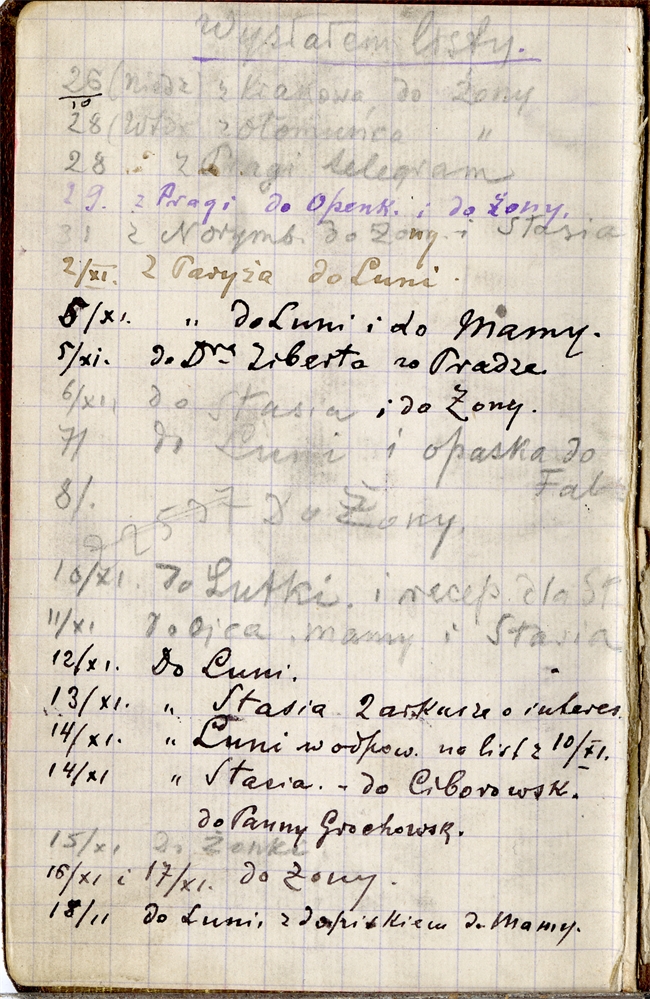 Wysłałem listy.
26/10 (niedz) z Krakowa do Żony
28 (Wtor z Ołomuńca "
28 . z Pragi telegram
29. z Pragi do Openk. i do żony.
31 z Norymb. do Żony i Stasia
2/XI. z Paryża do Luni.
5/XI. " do Luni i do Mamy.
5/XI. do Dra Ziberta w Pradze.
6/XI, do Stasia i do Żony.
7/ do Luni i opaska do
Fab
8/. Do Żony.
10/XI. do Lutki. i recep. dla St
11/XI do ojca, mamy i Stasia
12/XI. Do Luni.
13/XI. " Stasia 2 arkusze o interes.
14/XI. " Luni w odpow. na list z 10/XI.
14/XI " Stasia. - do Ciborowsk.
do Panny Grochowsk.
15/XI Do Żonki
16/XI i 17/XI. do Żony.
18/11 do Luni, z dopiskiem do Mamy.